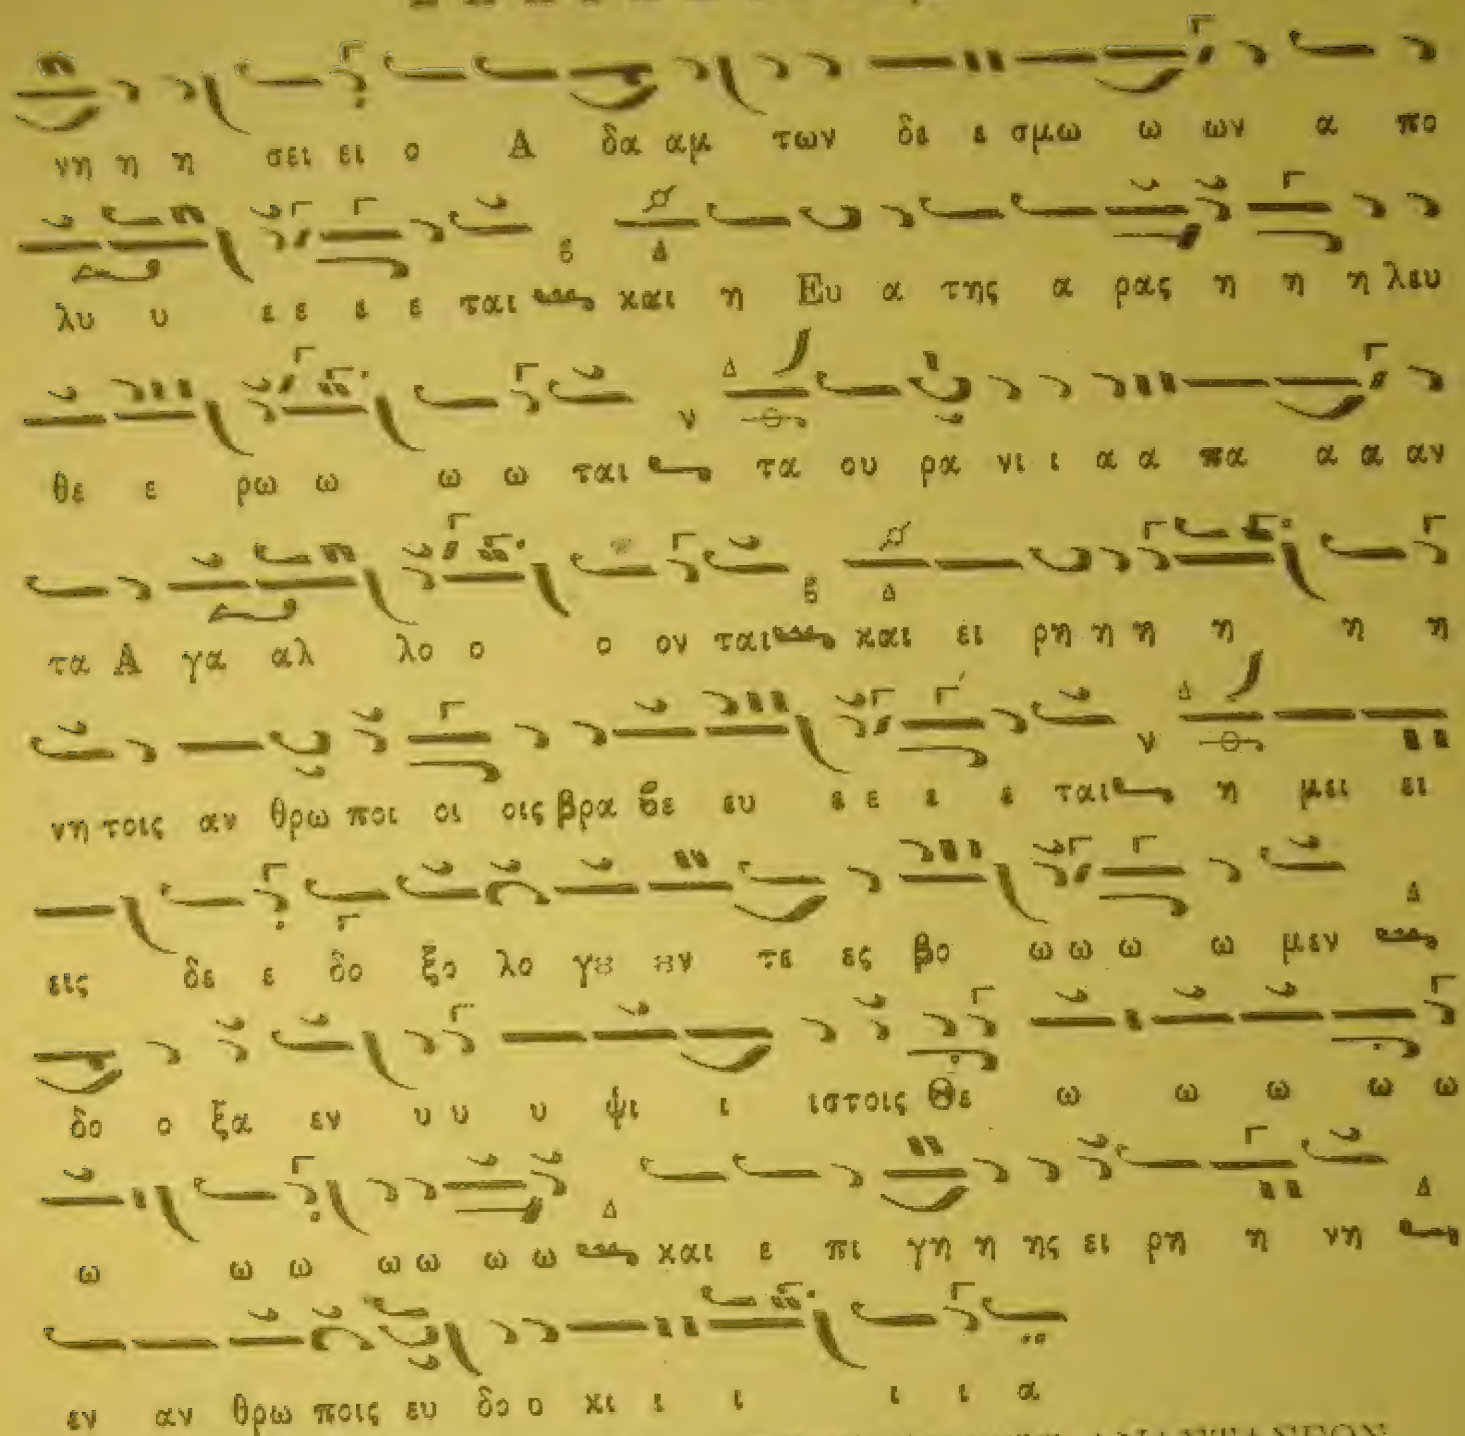 νη η η σει ει ο Α δα αμ των δε ε σμω ω ων α πο
λυ υ ε ε ε ε ται και η Ευ α της α ρας η η η λευ
θε ε ρω ω ω ω ται τα ου ρα νι ι α α πα α α αν
τα Α γα αλ λο ο ο ον ται και ει ρη η η η η η
νη τοις αν θρω ποι οι οις βρα βε ευ ε ε ε ε ται η μει ει
εις δε ε δο ξο λο γȣ ȣν τε ες βο ω ω ω ω μεν
δο ο ξα εν υ υ υ ψι ι ιστοις Θε ω ω ω ω ω
ω ω ω ω ω ω ω και ε πι γη η ης ει ρη η νη
εν αν θρω ποις ευ δο ο κι ι ι ι ι α